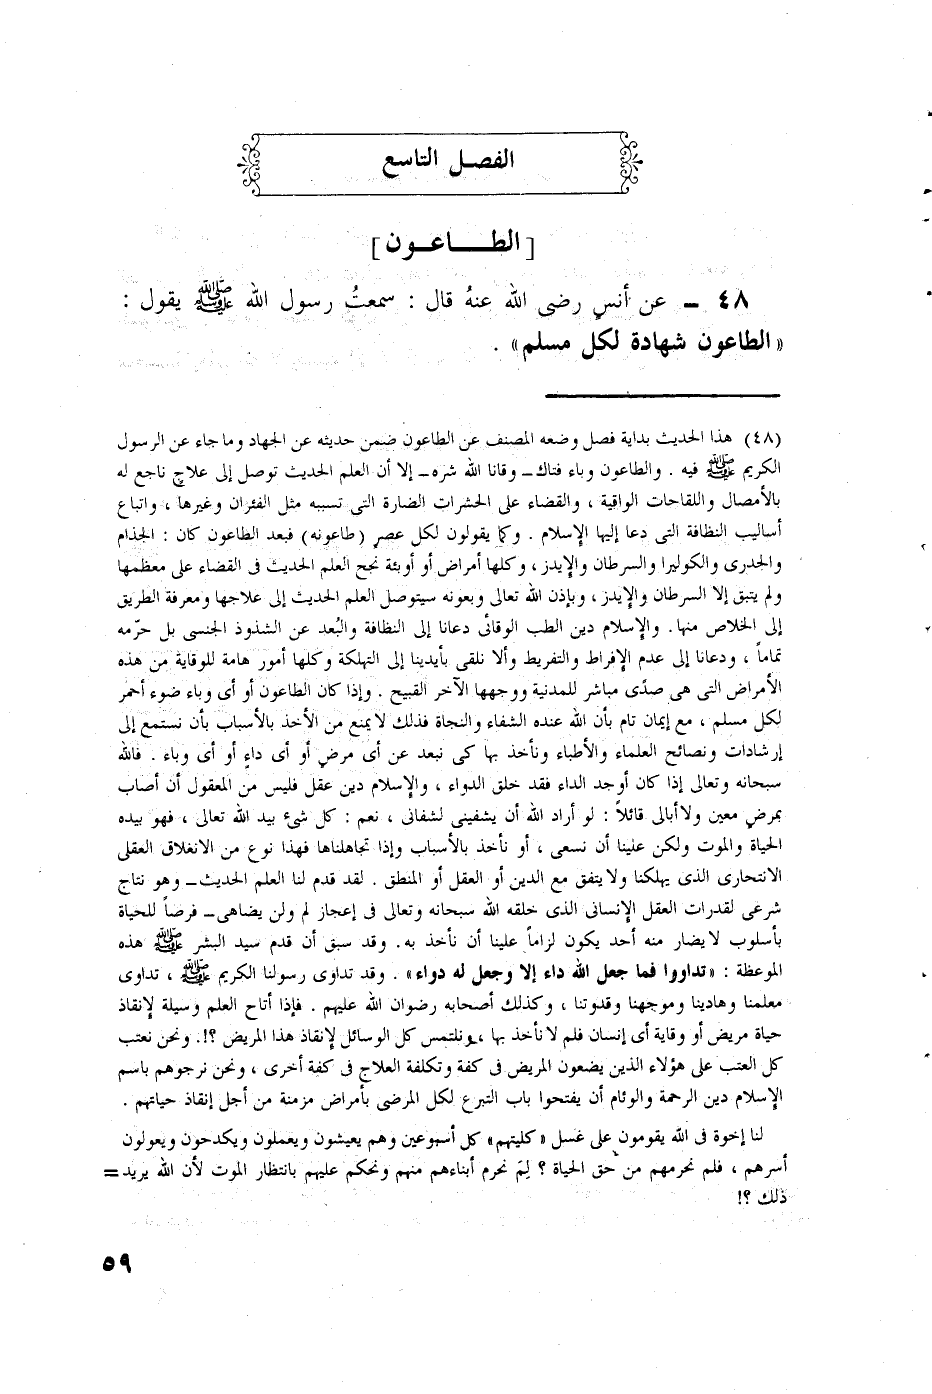 الفصل التاسع
[الطـــاعـون]
٤٨ ــ عن أنسٍ رضى الله عنهُ قال : سمعتُ رسول الله ﷺ يقول :
«الطاعون شهادة لكل مسلم» .
(٤٨) هذا الحديث بداية فصل وضعه المصنف عن الطاعون ضمن حديثه عن الجهاد وما جاء عن الرسول
الكريم ﷺ فيه . والطاعون وباء فتاك ــ وقانا الله شره ــ إلا أن العلم الحديث توصل إلى علاجٍ ناجع له
بالأمصال واللقاحات الواقية ، والقضاء على الحشرات الضارة التى تسببه مثل الفئران وغيرها ، واتباع
أساليب النظافة التى دعا إليها الإسلام . وكما يقولون لكل عصر (طاعونه) فبعد الطاعون كان : الجذام
والجدرى والكوليرا والسرطان والإيدز ، وكلها أمراض أو أوبئة نجح العلم الحديث فى القضاء على معظمها
ولم يتبق إلا السرطان والإيدز ، وبإذن الله تعالى وبعونه سيتوصل العلم الحديث إلى علاجها ومعرفة الطريق
إلى الخلاص منها. والإسلام دين الطب الوقائى دعانا إلى النظافة والبُعد عن الشذوذ الجنسى بل حرّمه
تماماً ، ودعانا إلى عدم الإفراط والتفريط وألا نلقى بأيدينا إلى التهلكة وكلها أمور هامة للوقاية من هذه
الأمراض التى هى صدًى مباشر للمدنية ووجهها الآخر القبيح . وإذا كان الطاعون أو أى وباء ضوء أحمر
لكل مسلم ، مع إيمان تام بأن الله عنده الشفاء والنجاة فذلك لا يمنع من الأخذ بالأسباب بأن نستمع إلى
إرشادات ونصائح العلماء والأطباء ونأخذ بها كى نبعد عن أى مرضٍ أو أى داءٍ أو أى وباء . فالله
سبحانه وتعالى إذا كان أوجد الداء فقد خلق الدواء ، والإسلام دين عقل فليس من المعقول أن أصاب
بمرضٍ معين ولا أبالى قائلاً : لو أراد الله أن يشفينى لشفانى ، نعم : كل شىء بيد الله تعالى ، فهو بيده
الحياة والموت ولكن علينا أن نسعى ، أو نأخذ بالأسباب وإذا تجاهلناها فهذا نوع من الانغلاق العقلى
الانتحارى الذى يهلكنا ولا يتفق مع الدين أو العقل أو المنطق . لقد قدم لنا العلم الحديث ــ وهو نتاج
شرعى لقدرات العقل الإنسانى الذى خلقه الله سبحانه وتعالى فى إعجاز لم ولن يضاهى ــ فرصاً للحياة
بأسلوب لا يضار منه أحد يكون لزاماً علينا أن نأخذ به. وقد سبق أن قدم سيد البشر ﷺ هذه
الموعظة : «تداووا فما جعل الله داء إلا وجعل له دواء» . وقد تداوى رسولنا الكريم ﷺ ، تداوى
معلمنا وهادينا وموجهنا وقدوتنا ، وكذلك أصحابه رضوان الله عليهم . فإذا أتاح العلم وسيلة لإنقاذ
حياة مريض أو وقاية أى إنسان فلم لا نأخذ بها ، ونلتمس كل الوسائل لإنقاذ هذا المريض ؟!. ونحن نعتب
كل العتب على هؤلاء الذين يضعون المريض فى كفة وتكلفة العلاج فى كفة أخرى ، ونحن نرجوهم باسم
الإسلام دين الرحمة والوئام أن يفتحوا باب التبرع لكل المرضى بأمراض مزمنة من أجل إنقاذ حياتهم .
لنا إخوة فى الله يقومون على غسل «كليتهم» كل أسبوعين وهم يعيشون ويعملون ويكدحون ويعولون
أسرهم ، فلم نحرمهم من حق الحياة ؟ لِمَ نحرم أبناءهم منهم ونحكم عليهم بانتظار الموت لأن الله يريد =
ذلك ؟!
٥٩